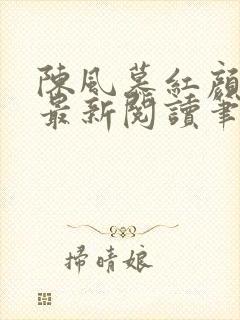 陳風慕紅顏
最新閱讀筆
掃晴娘